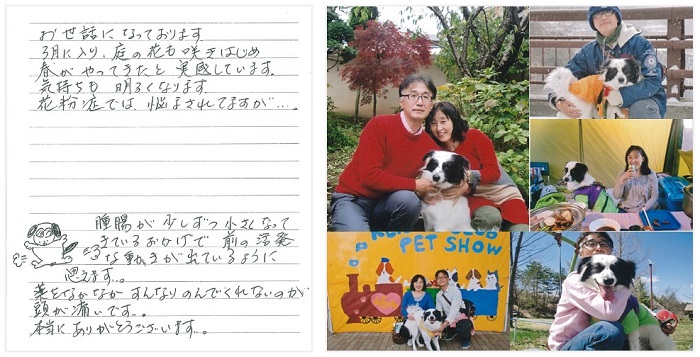 お世話になっております
3月に入り、庭の花も咲きはじめ
春がやってきたと実感しています。
気持ちも明るくなります
花粉症では悩まされてますが…。
腫腸が少しずつ小さくなって
きているおかげで前の活発
な動きが出ているように
思えます。
薬をなかなかすんなりのんでくれないのが
頭が痛いです。
本当にありがとうございます。
PET SHOW